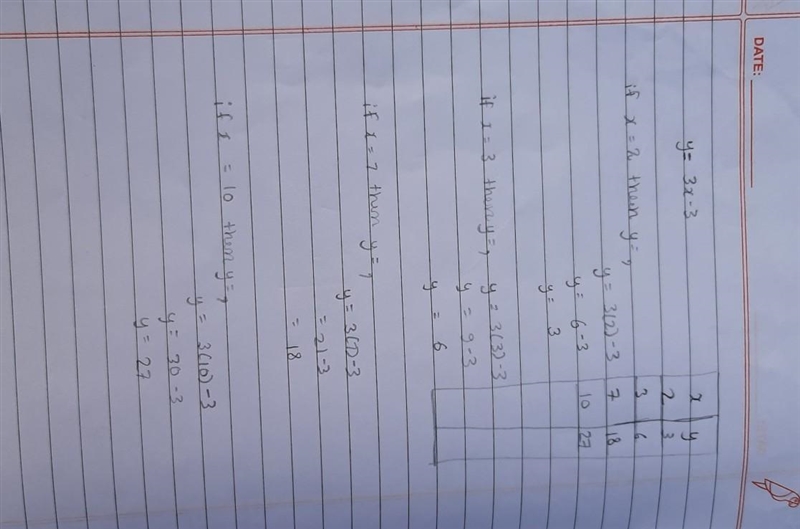 DATE:
y = 3x-3
x y
2 3
3 6
7 18
10 27
if x = 2 then y = ?
y = 3(2)-3
y = 6-3
y = 3
if x = 3 then y = ?
y = 3(3)-3
y = 9-3
y = 6
if x = 7 then y = ?
y = 3(7)-3
= 21-3
= 18
if x = 10 then y = ?
y = 3(10)-3
y = 30-3
y = 27